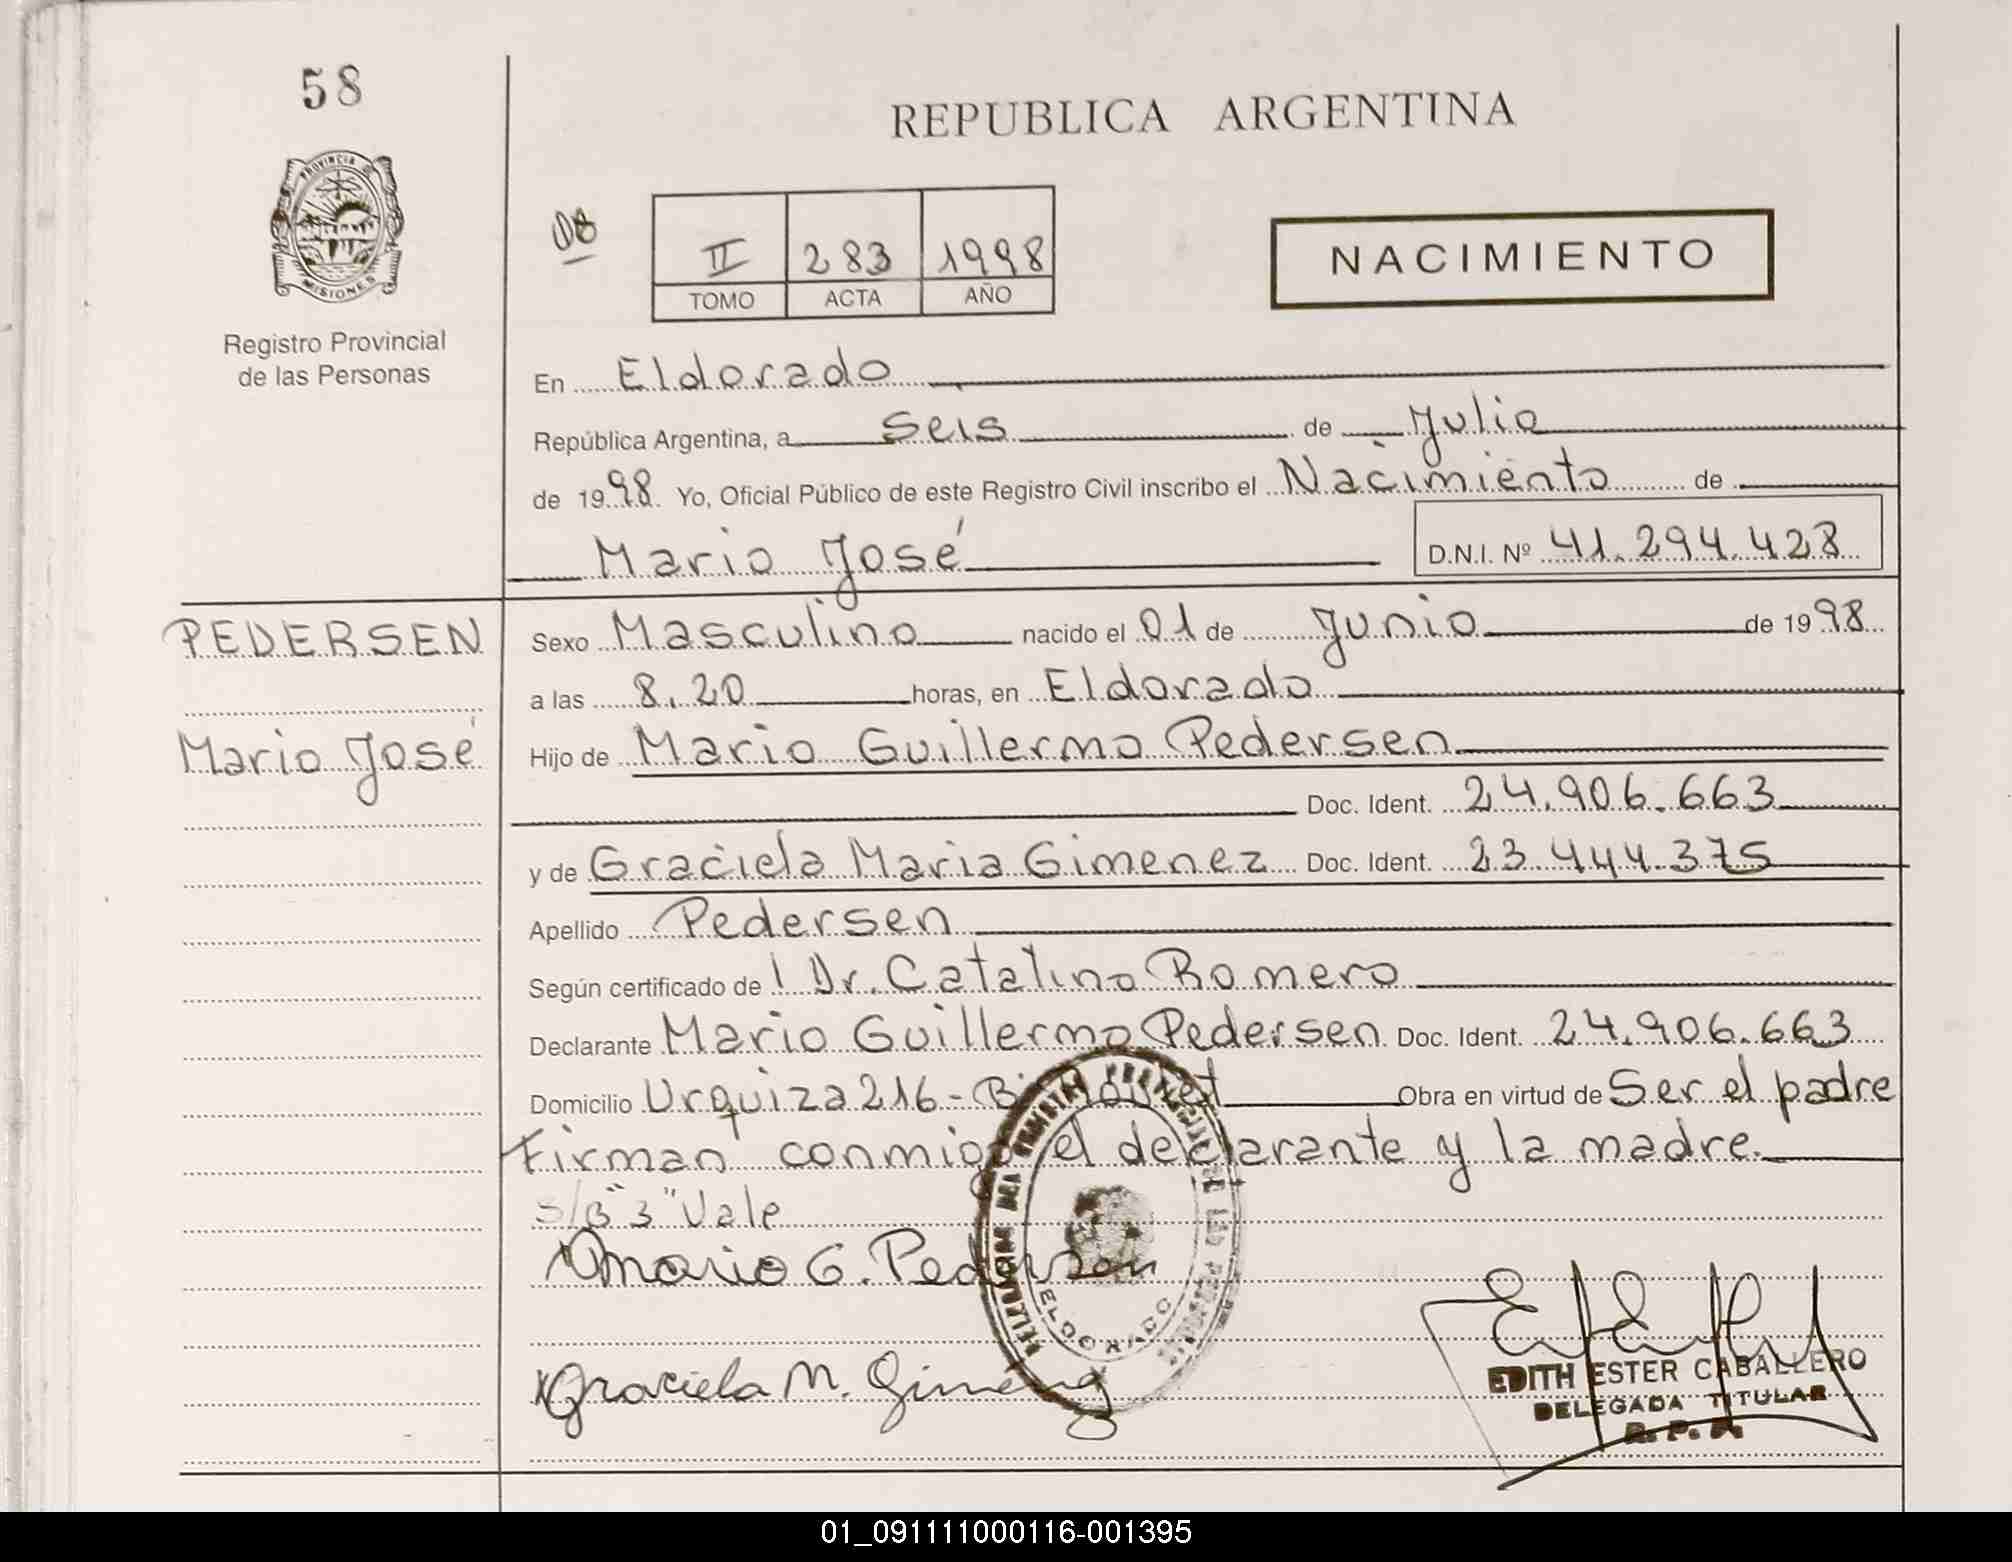 58
REPUBLICA ARGENTINA
PROVINCIA DE
MISIONES
Registro Provincial
de las Personas
II 283 1998
TOMO ACTA AÑO
NACIMIENTO
En Eldorado
República Argentina, a Seis de Julio
de 1998. Yo, Oficial Público de este Registro Civil inscribo el Nacimiento de
Mario José D.N.I. Nº 41.294.428
PEDERSEN
Mario José
Sexo Masculino nacido el 01 de Junio de 1998
a las 8.20 horas, en Eldorado
Hijo de Mario Guillermo Pedersen
Doc. Ident. 24.906.663
y de Graciela Maria Gimenez Doc. Ident. 23.444.375
Apellido Pedersen
Según certificado de l Dr. Catalino Romero
Declarante Mario Guillermo Pedersen Doc. Ident. 24.906.663
Domicilio Urquiza 216 - Obra en virtud de Ser el padre
Firman conmigo el declarante y la madre.
S/B "3" Vale
Mario G. Pedersen
ELDORADO
Graciela M. Gimenez
EDITH ESTER CABALLERO
DELEGADA TITULAR
R. P. P.
01_091111000116-001395